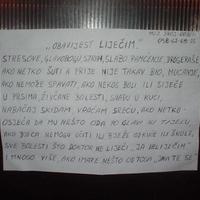 MOJ BROJ
"OBAVIJEST LIJEČIM."
STRESOVE, GLAVOBOLJU, STRAH, SLABO PAMĆENJE, PROGERAŠE
AKO NETKO ŠUTI A PRIJE NIJE TAKAV BIO, MUCANJE,
AKO NEMOŽE SPAVATI, AKO NEKOG BOLI ILI SIJEČE
U PRSIMA, ŽIVČANE BOLESTI, SVAĐU U KUĆI,
NABAČAJ SKIDAM, VRAĆAM SREĆU, AKO NETKO
OSJEĆA DA MU NEŠTO ODA PO GLAVI ILI TIJELU,
AKO DJECA NEMOGU UČITI ILI BJEŽE OD KUĆE ILI ŠKOLE,
SVE BOLESTI ŠTO DOKTOR NE LIJEČI "JA IH LIJEČIM"
I MNOGO VIŠE, AKO IMATE NEŠTO OD TOGA JAVITE SE